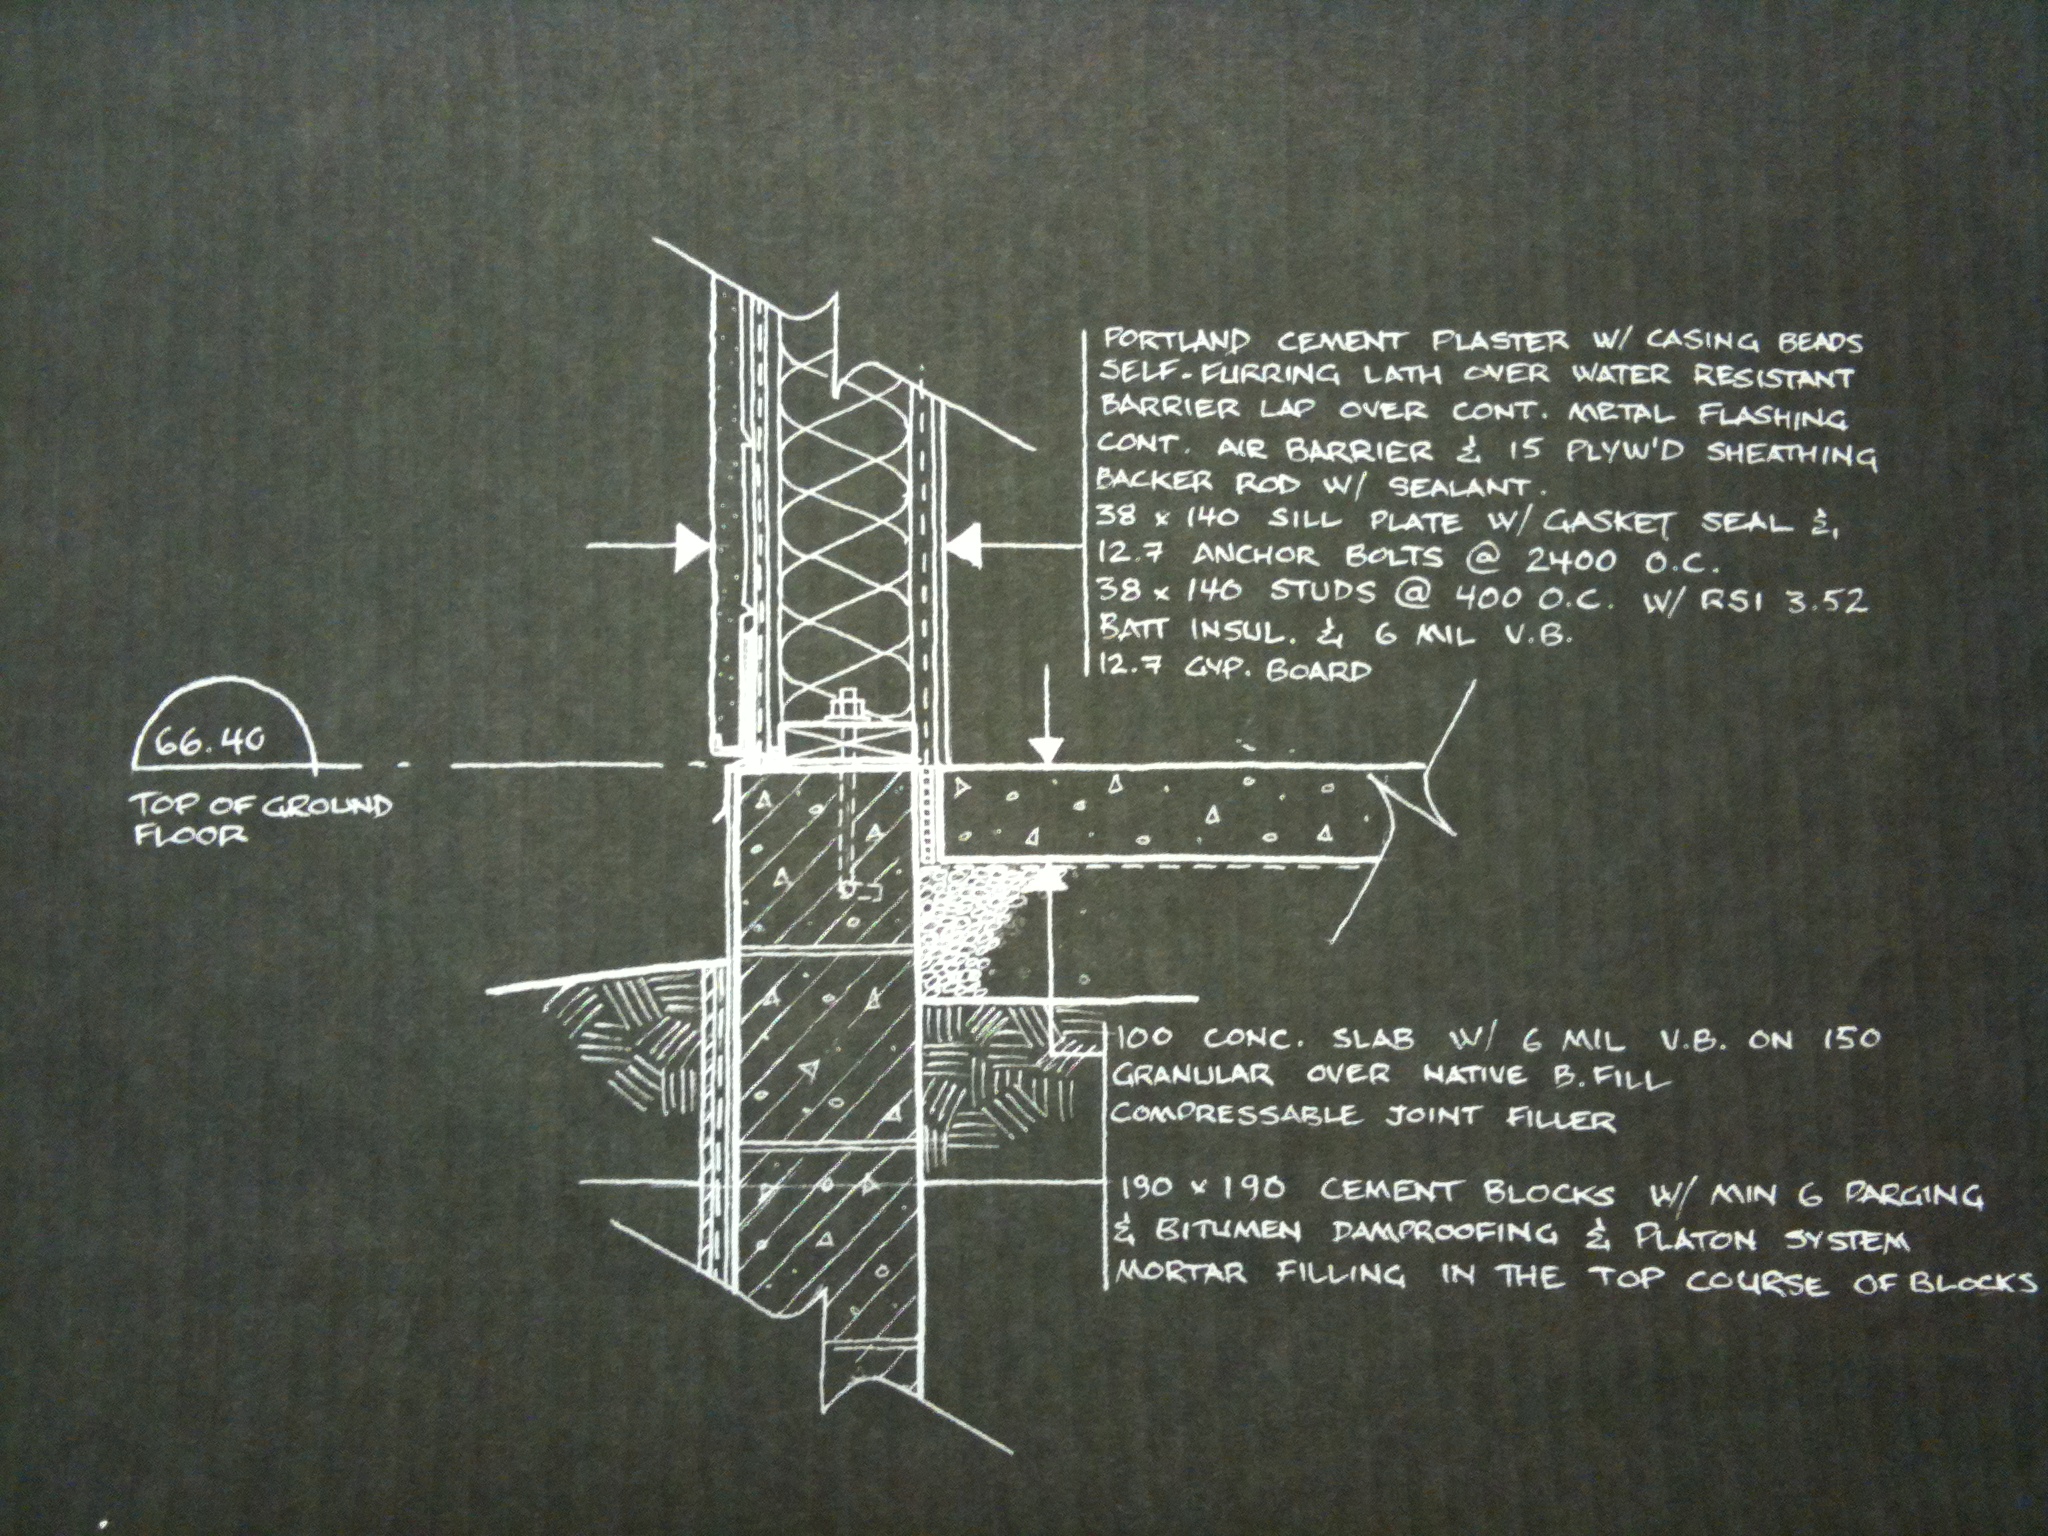 PORTLAND CEMENT PLASTER W/ CASING BEADS
SELF-FURRING LATH OVER WATER RESISTANT
BARRIER LAP OVER CONT. METAL FLASHING
CONT. AIR BARRIER & 15 PLYW'D SHEATHING
BACKER ROD W/ SEALANT.
38 x 140 SILL PLATE W/ GASKET SEAL &
12.7 ANCHOR BOLTS @ 2400 O.C.
38 x 140 STUDS @ 400 O.C. W/ RSI 3.52
BATT INSUL. & 6 MIL V.B.
12.7 GYP. BOARD
66.40
TOP OF GROUND
FLOOR
100 CONC. SLAB W/ 6 MIL V.B. ON 150
GRANULAR OVER NATIVE B.FILL
COMPRESSABLE JOINT FILLER
190 x 190 CEMENT BLOCKS W/ MIN 6 PARGING
& BITUMEN DAMPROOFING & PLATON SYSTEM
MORTAR FILLING IN THE TOP COURSE OF BLOCKS